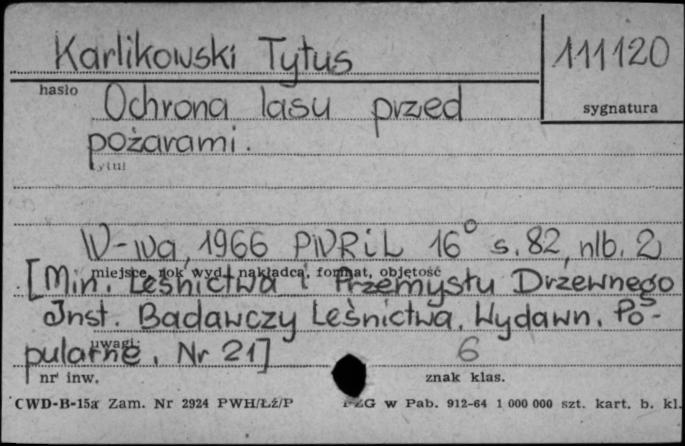 Karlikowski Tytus 111120
hasło sygnatura
Ochrona lasu przed
pożarami.
tytuł
W-wa, 1966 PWRiL 16° s. 82, nlb. 2
miejsce, rok wyd., nakładca, format, objętość
[Min. Leśnictwa i Przemysłu Drzewnego
Inst. Badawczy Leśnictwa. Wydawn. Po-
uwagi:
pularne. Nr 21] 6
nr inw. znak klas.
CWD-B-15a Zam. Nr 2924 PWH/Łź/P PZG w Pab. 912-64 1 000 000 szt. kart. b. kl.